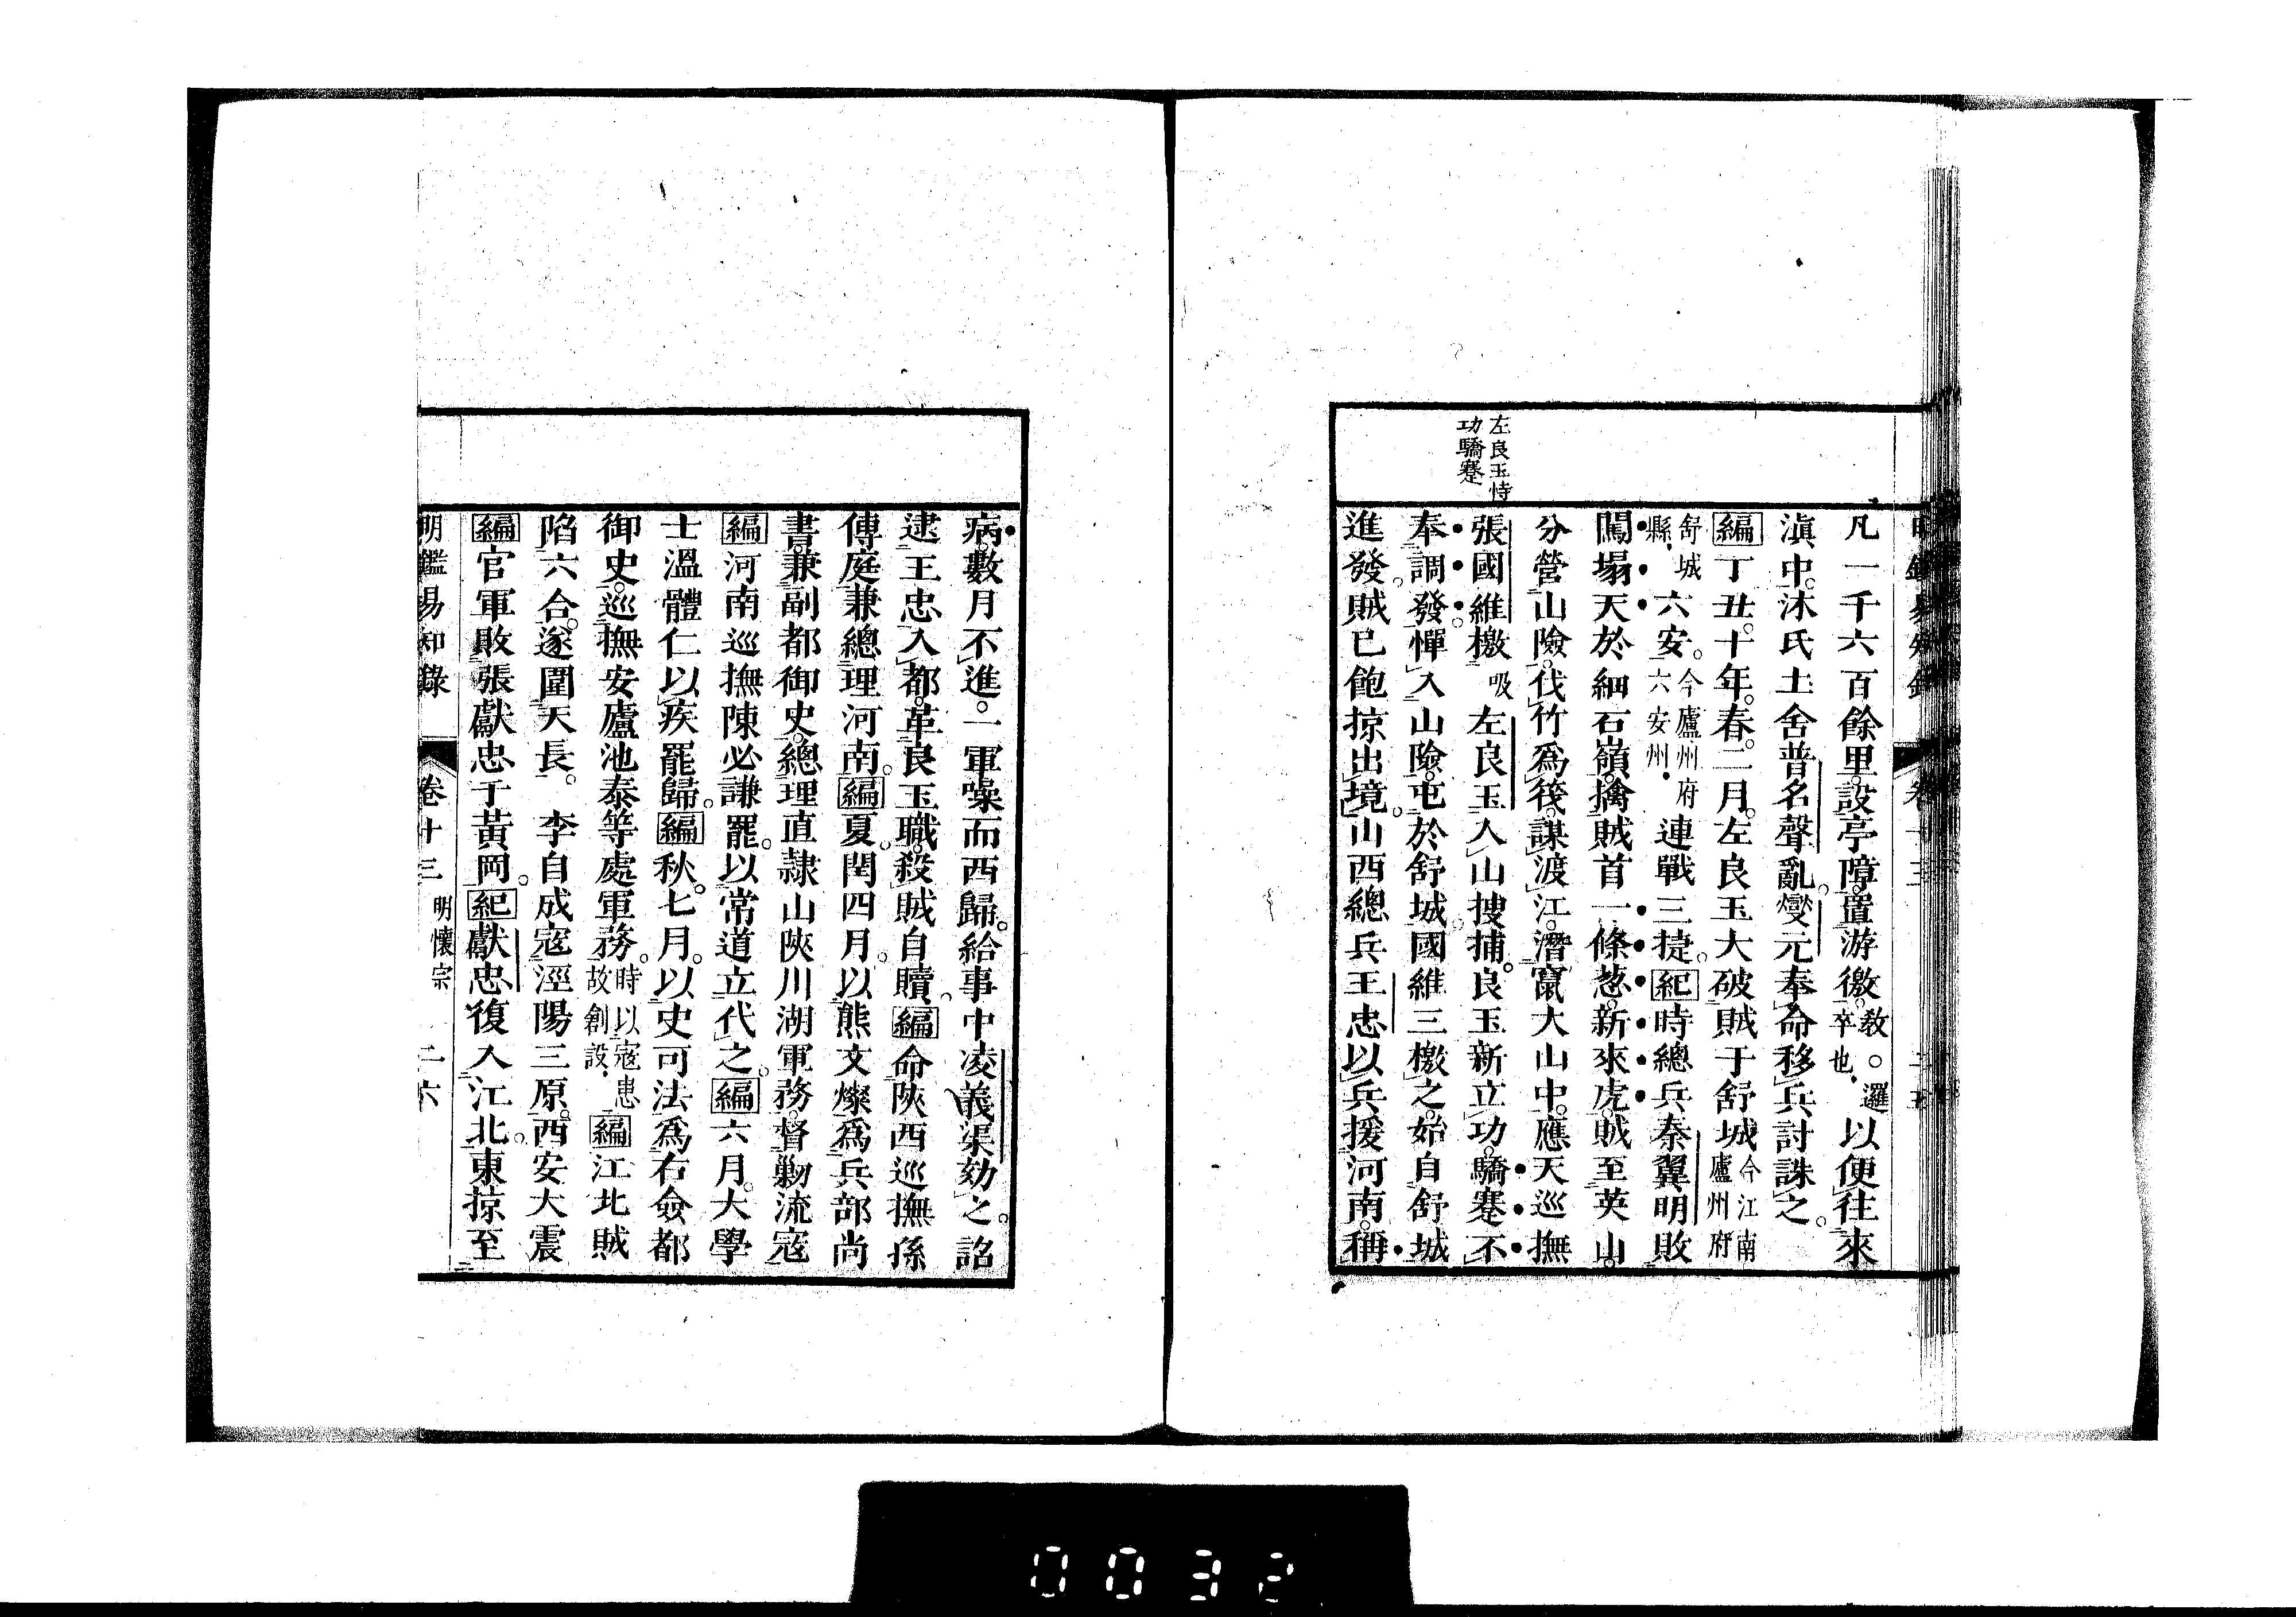 凡一千六百餘里。設亭障。置游徼。敎。邏卒也以便往來
滇中。沐氏土舍普名聲亂。燮元奉命移兵討誅之。
編丁丑。十年。春。二月。左良玉大破賊于舒城今江南廬州府
舒城縣六安。今廬州府六安州連戰三捷。紀時總兵秦翼明敗
闖塌天於細石嶺。擒賊首一條葱。新來虎。賊至英山。
分營山險。伐竹爲筏。謀渡江。潛竄大山中。應天巡撫
張國維檄吸左良玉入山搜捕。良玉新立功。驕蹇不
奉調發。憚入山險。屯於舒城。國維三檄之。始自舒城
進發。賊已飽掠出境。山西總兵王忠以兵援河南。稱
左良玉恃
功驕蹇
病。數月不進。一軍噪而西歸。給事中凌義渠劾之。詔
逮王忠入都。革良玉職。殺賊自贖。編命陝西巡撫孫
傳庭兼總理河南。編夏。閏四月。以熊文燦爲兵部尚
書。兼副都御史。總理直隸山陝川湖軍務。督剿流寇
編河南巡撫陳必謙罷。以常道立代之。編六月。大學
士溫體仁以疾罷歸。編秋。七月。以史可法爲右僉都
御史。巡撫安廬池泰等處軍務。時以寇患故創設編江北賊
陷六合。遂圍天長。李自成寇涇陽三原。西安大震
編官軍敗張獻忠于黃岡。紀獻忠復入江北。東掠至
明鑑易知錄 卷十三 明懷宗 二六